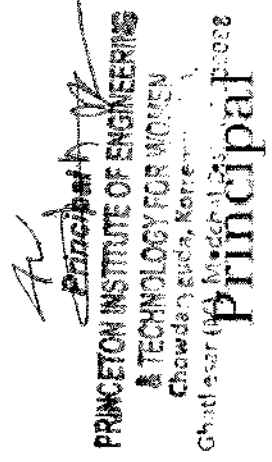 Principal
PRINCETON INSTITUTE OF ENGINEERING
& TECHNOLOGY FOR WOMEN
Chowdariguda, Korrem
Ghatkesar (M), Medchal
Principal